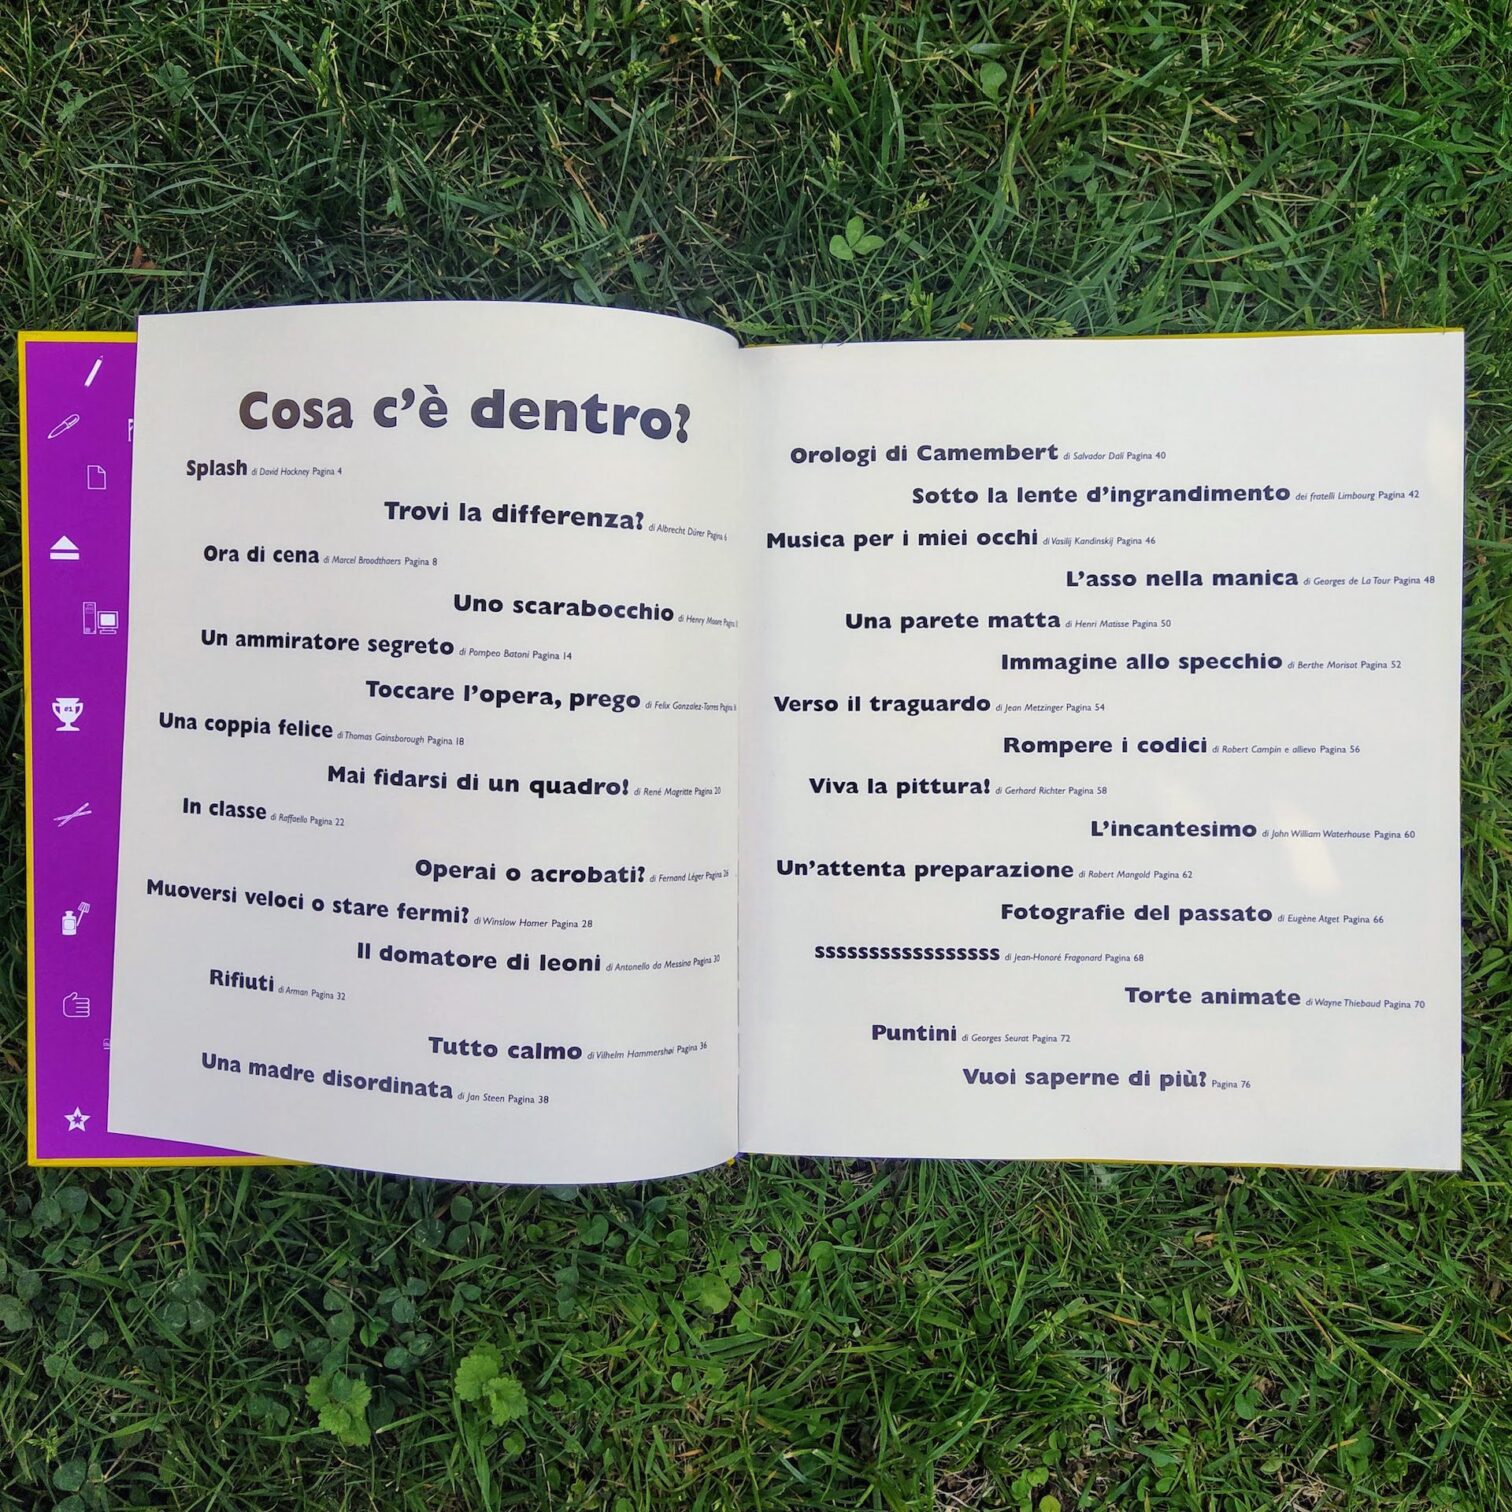 Cosa c'è dentro?
Splash di David Hockney Pagina 4
Trovi la differenza? di Albrecht Dürer Pagina 6
Ora di cena di Marcel Broodthaers Pagina 8
Uno scarabocchio di Henry Moore Pagina
Un ammiratore segreto di Pompeo Batoni Pagina 14
Toccare l'opera, prego di Felix Gonzalez-Torres Pagina
Una coppia felice di Thomas Gainsborough Pagina 18
Mai fidarsi di un quadro! di René Magritte Pagina 20
In classe di Raffaello Pagina 22
Operai o acrobati? di Fernand Léger Pagina 26
Muoversi veloci o stare fermi? di Winslow Homer Pagina 28
Il domatore di leoni di Antonello da Messina Pagina 30
Rifiuti di Arman Pagina 32
Tutto calmo di Vilhelm Hammershøi Pagina 36
Una madre disordinata di Jan Steen Pagina 38
Orologi di Camembert di Salvador Dalí Pagina 40
Sotto la lente d'ingrandimento dei fratelli Limbourg Pagina 42
Musica per i miei occhi di Vasilij Kandinskij Pagina 46
L'asso nella manica di Georges de La Tour Pagina 48
Una parete matta di Henri Matisse Pagina 50
Immagine allo specchio di Berthe Morisot Pagina 52
Verso il traguardo di Jean Metzinger Pagina 54
Rompere i codici di Robert Campin e allievo Pagina 56
Viva la pittura! di Gerhard Richter Pagina 58
L'incantesimo di John William Waterhouse Pagina 60
Un'attenta preparazione di Robert Mangold Pagina 62
Fotografie del passato di Eugène Atget Pagina 66
sssssssssssssssss di Jean-Honoré Fragonard Pagina 68
Torte animate di Wayne Thiebaud Pagina 70
Puntini di Georges Seurat Pagina 72
Vuoi saperne di più? Pagina 76
#1